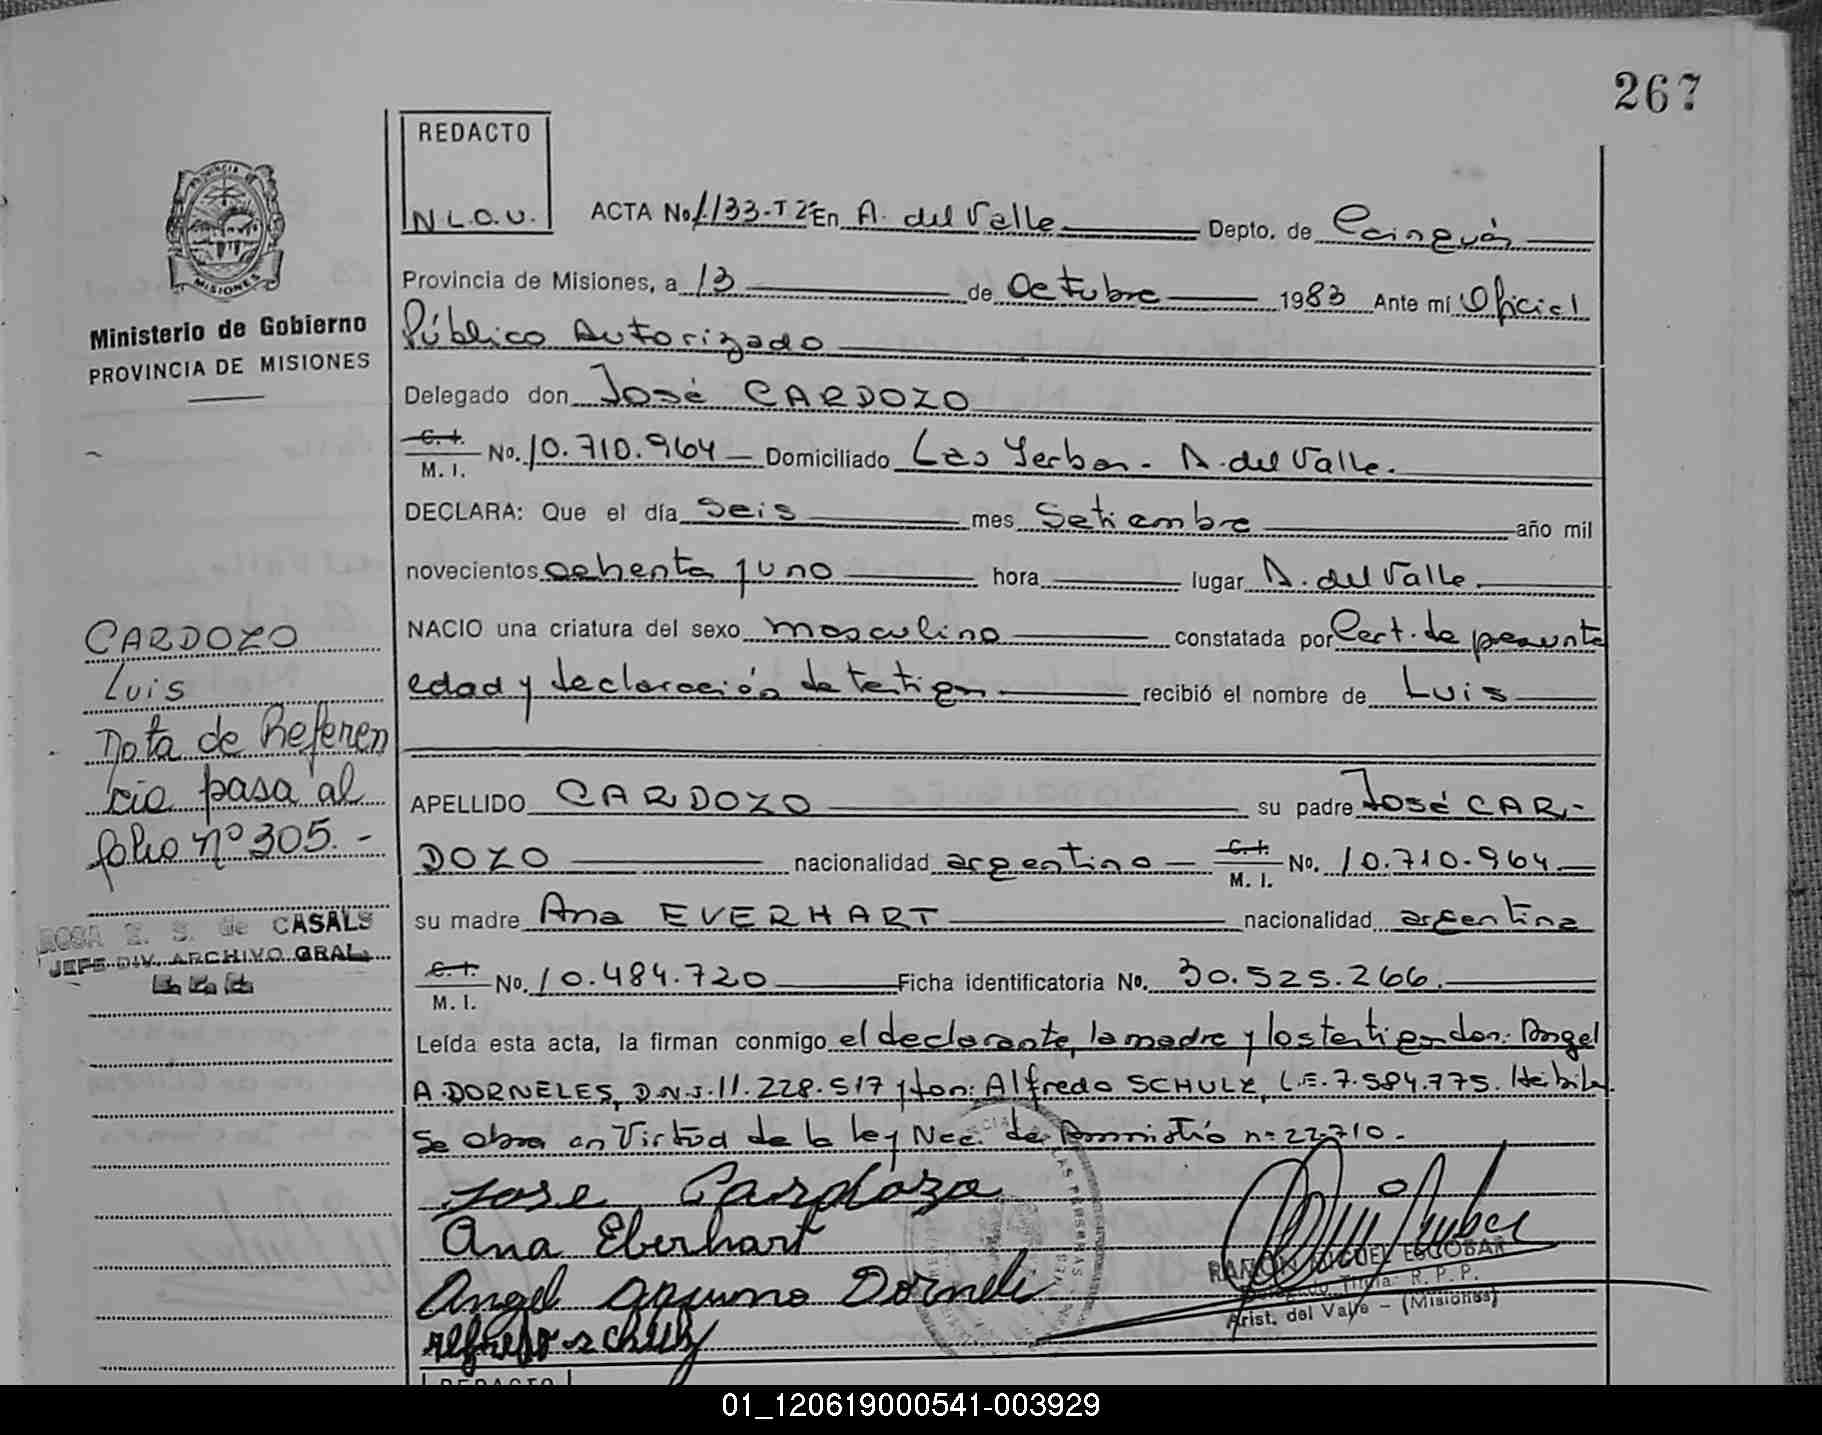 267
REDACTO
N L.O.U.
ACTA No. 1133-T2º En A. del Valle Depto. de Cainguás
Provincia de Misiones, a 13 de Octubre 1983 Ante mí Oficial
Público Autorizado
Delegado don José CARDOZO
C. I. M. I. No. 10.710.964 Domiciliado Las Yerbas - A. del Valle.
DECLARA: Que el día seis mes Setiembre año mil
novecientos ochenta y uno hora lugar A. del Valle.
NACIO una criatura del sexo masculino constatada por Cert. de presunta
edad y declaración de testigos recibió el nombre de Luis
APELLIDO CARDOZO su padre José CAR-
DOZO nacionalidad argentino C. I. M. I. No. 10.710.964
su madre Ana EVERHART nacionalidad argentina
C. I. M. I. No. 10.484.720 Ficha identificatoria No. 30.525.266.
Leída esta acta, la firman conmigo el declarante, la madre y los testigos don: Angel
A. DORNELES, D.N.I. 11.228.517 y don: Alfredo SCHULZ, L.E. 7.584.775. Habil
Se Obra en Virtud de la Ley Nac. de Amnistía nº 22.710.-
Jose Cardozo
Ana Eberhart
Angel Dornele
alfredo schulz
RAMON MIGUEL ESCOBAR
Titular R. P. P.
Arist. del Valle - (Misiones)
PROVINCIA DE
MISIONES
Ministerio de Gobierno
PROVINCIA DE MISIONES
CARDOZO
Luis
Nota de Referen
cia pasa al
folio nº 305.-
ROSA E. S. de CASALS
JEFE DIV. ARCHIVO GRAL.
REDACTO
01_120619000541-003929